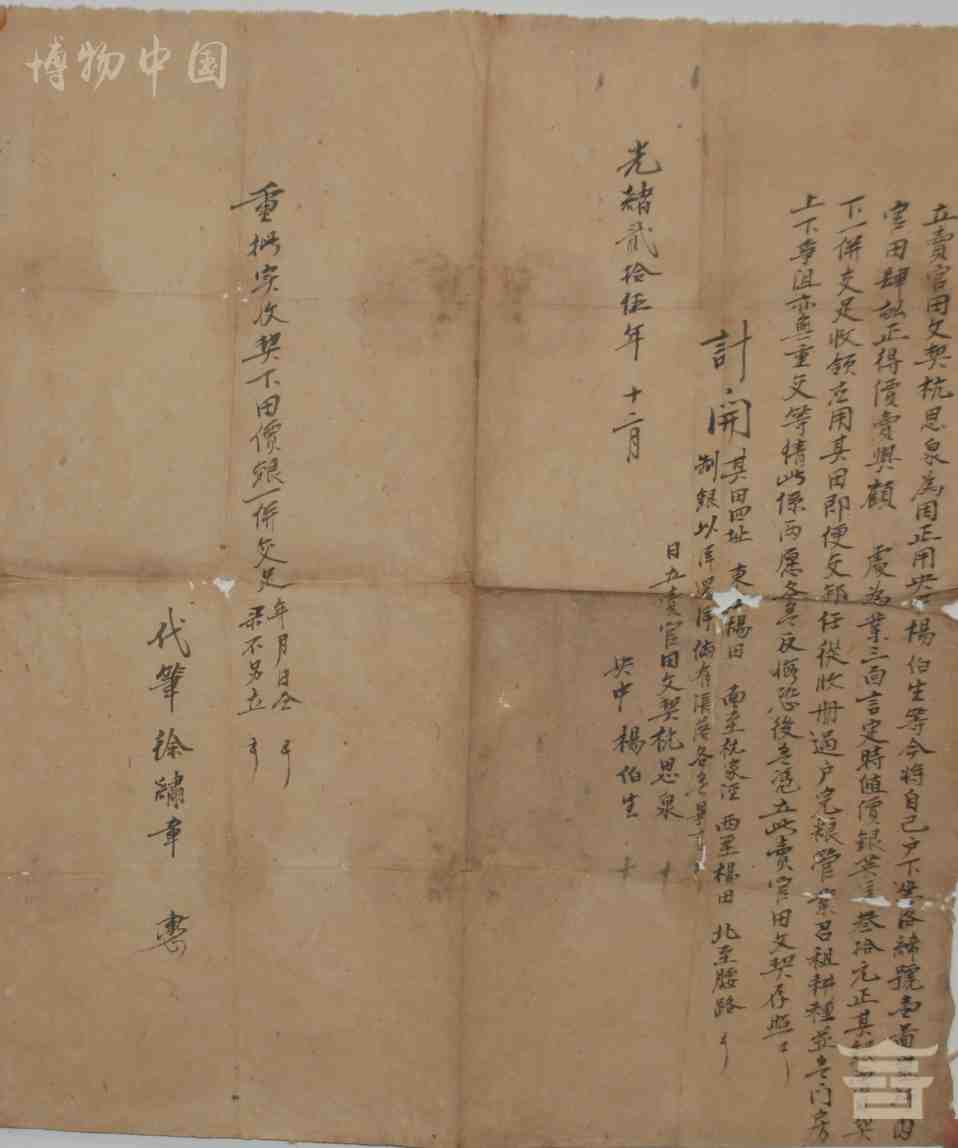 博物中国
立賣官田文契杭思泉為因正用央中楊伯生等今將自己户下坐落
官田肆畝正得價賣與顧 處為業三面言定時值價銀英洋叁拾元正其銀
下一併交足收領應用其田即便交卸任從收册過户完糧管業召租耕種並無门房
上下爭阻亦無重交等情此係兩愿各無反悔恐後無憑立此賣官田文契存照
計開 其田四址 東至楊田 南至杭家涇 西至楊田 北至腰路
制銀以洋
光緒貳拾伍年十二月 日立賣官田文契杭思泉 十
央中 楊伯生 十
重批实收契下田價銀一併交足年月日仝
不另立
代筆 徐 章